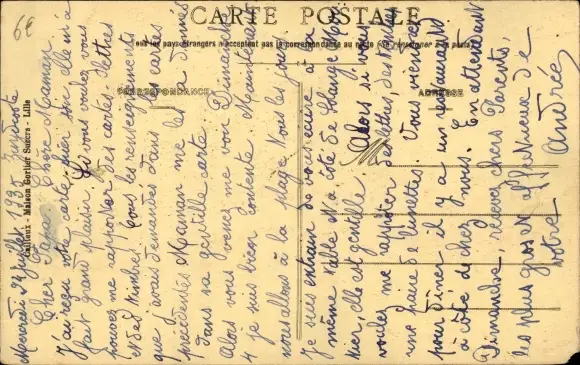 CARTE POSTALE
Tous les pays étrangers n'acceptent pas la correspondance au recto (Se renseigner à la poste)
CORRESPONDANCE
ADRESSE
Cailleux - Maison Gorlier Sœurs - Lille
68
Mercredi juillet 1925
Cher Papa Chère Maman
J'ai reçu votre carte hier soir elle m'a
fait grand plaisir. Si vous voulez vous
pouvez me apporter des cartes-lettres
et des timbres. Tous les renseignements
que j'avais demandés dans les cartes
précédentes Maman me les a donnés
dans sa gentille carte.
Alors vous venez me voir Dimanche
je suis bien contente. Maintenant
nous allons à la plage tous les jours
Je suis entrain de vous écrire à la
même table et à côté de Solange
hier, elle est gentille. Alors si vous
voulez me apporter des lettres, des timbres
une paire de lunettes. Vous viendrez
pour dîner il y a un restaurant
à côté de chez nous. En attendant
Dimanche recevez chers Parents,
les plus gros et affectueux de
votre Andrée